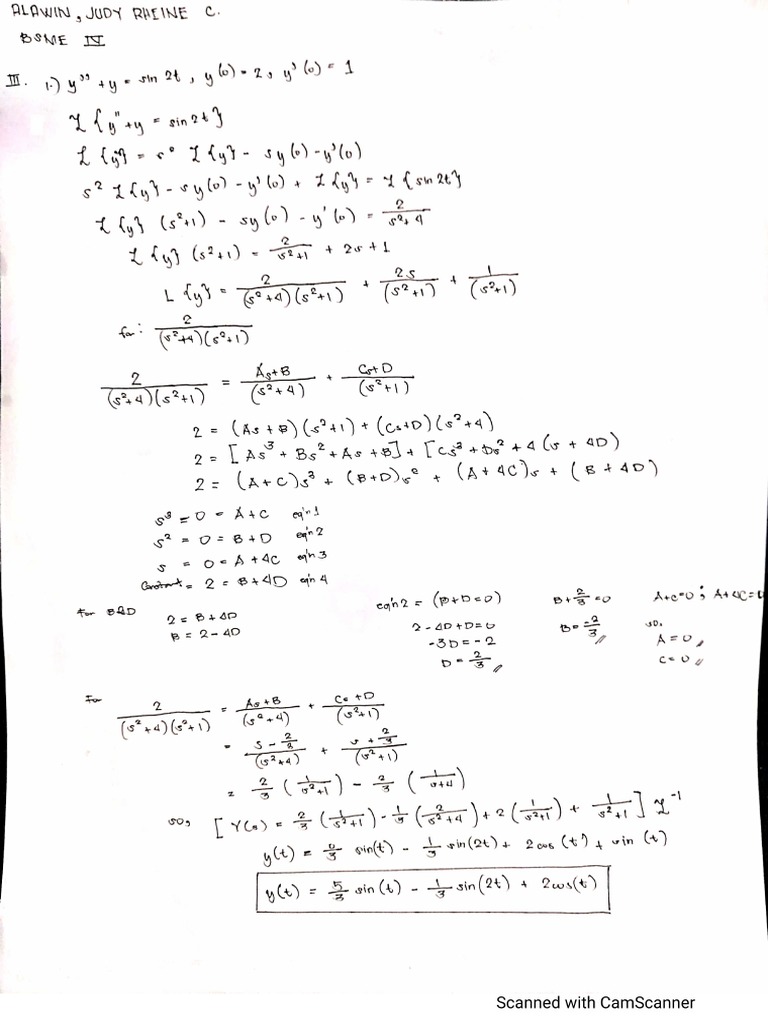 ALAWIN, JUDY RHEINE C.
BSME IV
III. 1.) y'' + y = sin 2t, y(0) = 2, y'(0) = 1
ℒ {y'' + y = sin 2t}
ℒ {y''} = s² ℒ {y} - sy(0) - y'(0)
s² ℒ {y} - sy(0) - y'(0) + ℒ {y} = ℒ {sin 2t}
ℒ {y} (s²+1) - sy(0) - y'(0) = 2/(s²+4)
ℒ {y} (s²+1) = 2/(s²+1) + 2s + 1
L {y} = 2/((s²+4)(s²+1)) + 2s/(s²+1) + 1/(s²+1)
for: 2/((s²+4)(s²+1))
2/((s²+4)(s²+1)) = (As+B)/(s²+4) + (Cs+D)/(s²+1)
2 = (As+B)(s²+1) + (Cs+D)(s²+4)
2 = [As³ + Bs² + As + B] + [Cs³ + Ds² + 4Cs + 4D)
2 = (A+C)s³ + (B+D)s² + (A+4C)s + (B+4D)
s³ = 0 = A+C eq'n 1
s² = 0 = B+D eq'n 2
s = 0 = A+4C eq'n 3
Constant = 2 = B+4D eq'n 4
For B&D 2 = B+4D eq'n 2 = (B+D=0) B + 2/3 = 0 A+C=0 ; A+4C=0
B = 2-4D 2-4D+D=0 B = -2/3 so,
-3D = -2 A = 0
D = 2/3 C = 0
For 2/((s²+4)(s²+1)) = (As+B)/(s²+4) + (Cs+D)/(s²+1)
= (s - 2/3)/(s²+4) + (s + 2/3)/(s²+1)
= 2/3 (1/(s²+1)) - 2/3 (1/(s+4))
so, [Y(s) = 2/3 (1/(s²+1)) - 1/3 (2/(s²+4)) + 2 (1/(s²+1)) + 1/(s²+1)] ℒ⁻¹
y(t) = sin(t) - 1/3 sin(2t) + 2cos(t) + sin(t)
y(t) = 5/3 sin(t) - 1/3 sin(2t) + 2cos(t)
Scanned with CamScanner